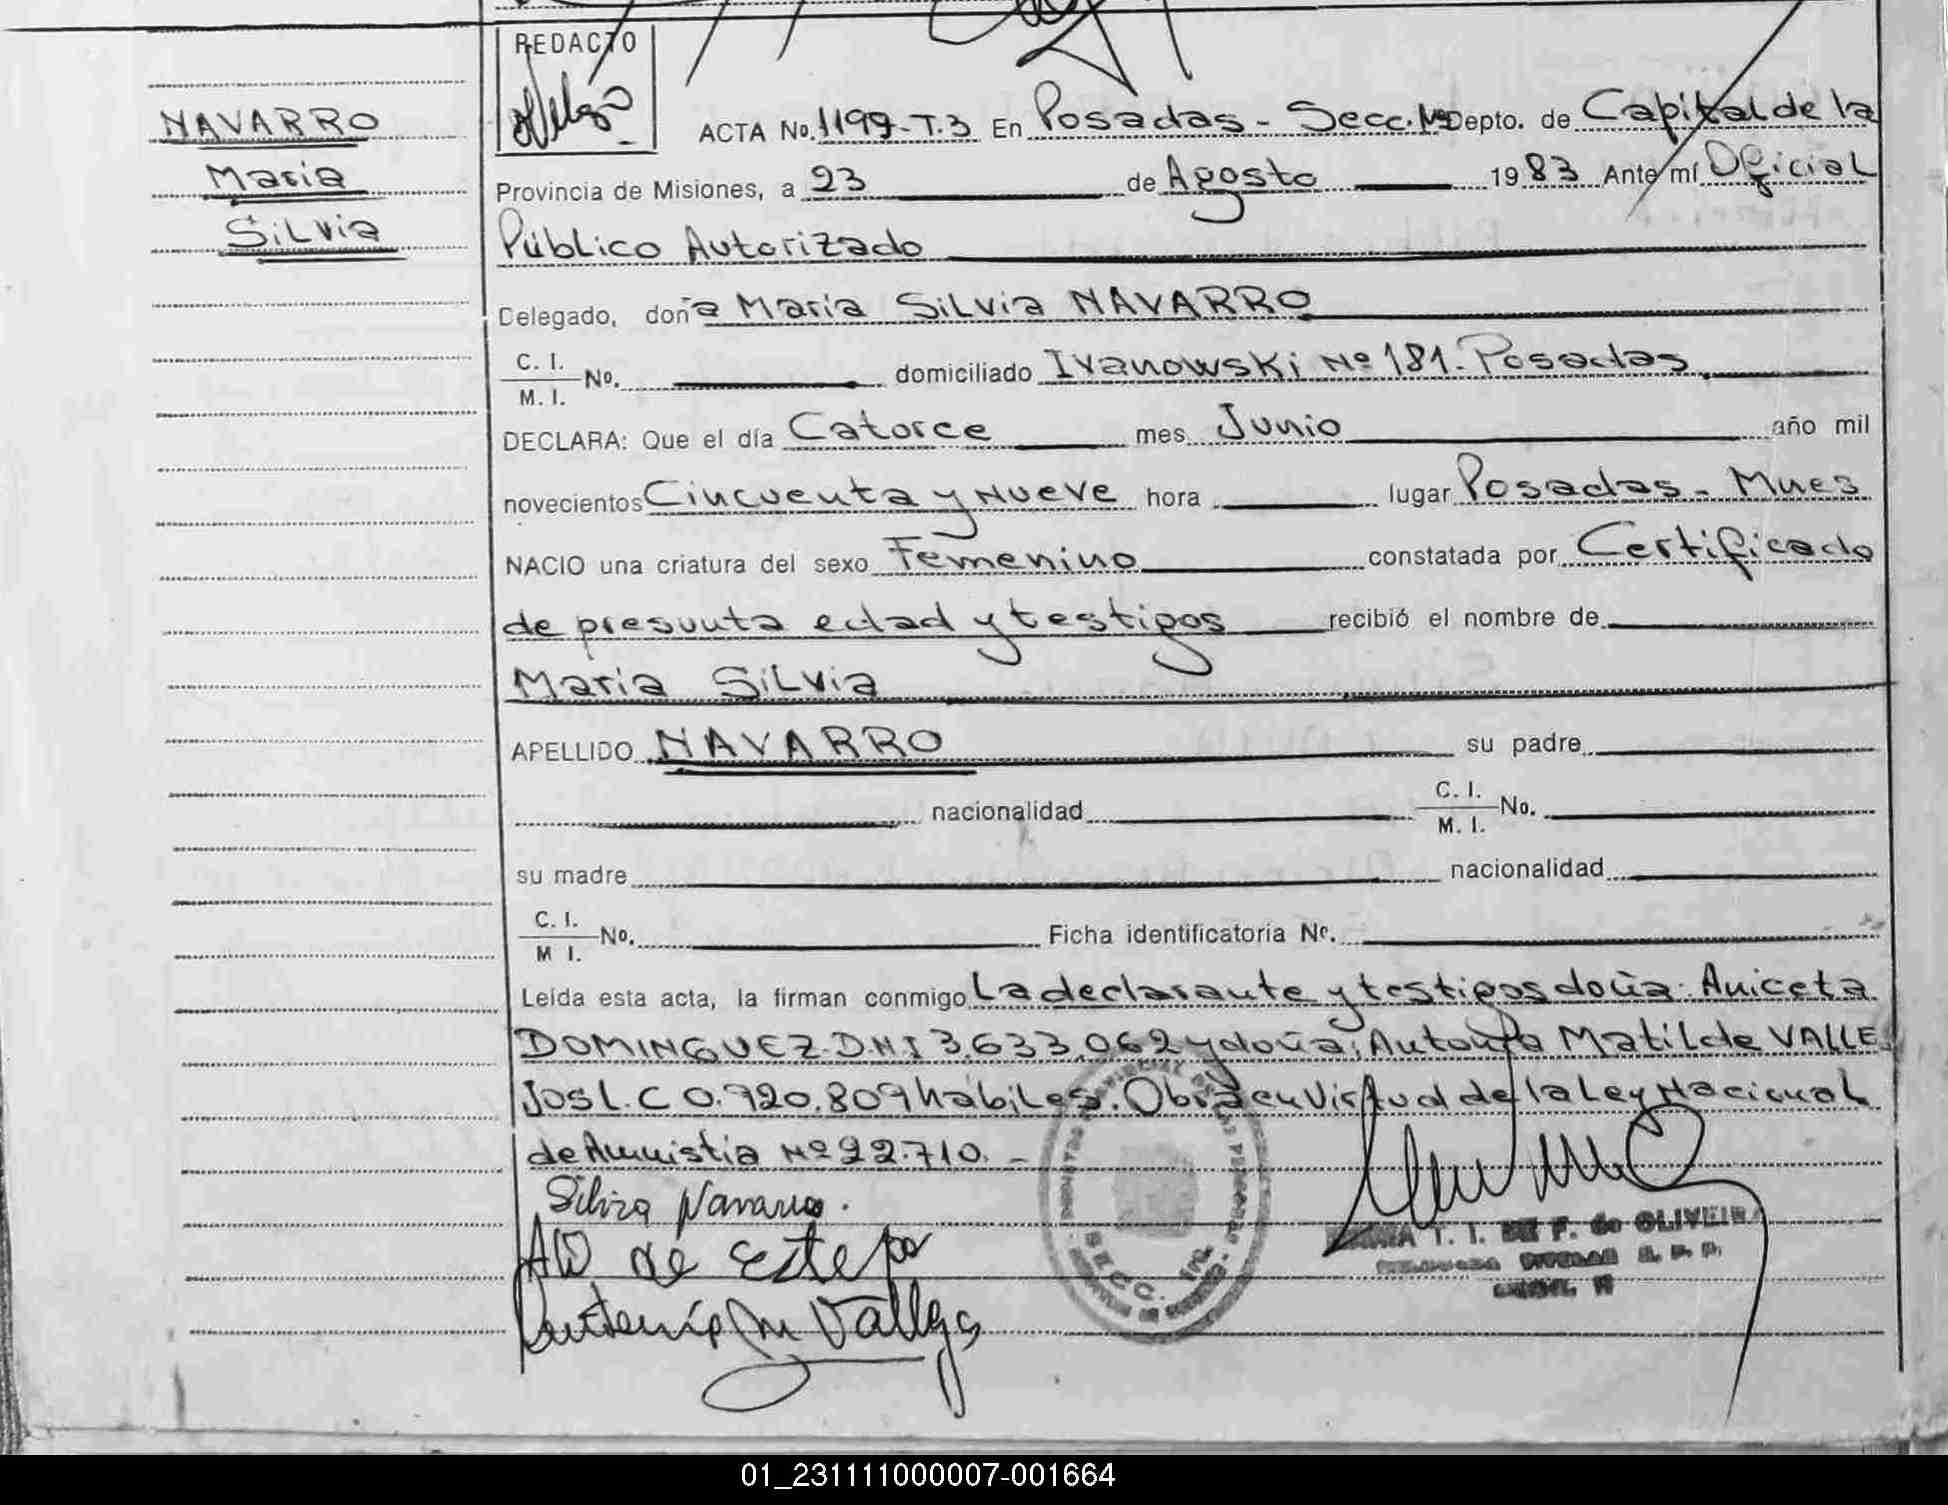 REDACTO
NAVARRO
Maria
Silvia
ACTA No. 1199-T.3 En Posadas - Secc. 1ª Depto. de Capital de la
Provincia de Misiones, a 23 de Agosto 1983 Ante mí Oficial
Público Autorizado
Delegado, doña Maria Silvia NAVARRO
C. I.
M. I. No. domiciliado Ivanowski Nº 181. Posadas
DECLARA: Que el día Catorce mes Junio año mil
novecientos Cincuenta y Nueve hora lugar Posadas - Mnes
NACIO una criatura del sexo Femenino constatada por Certificado
de presunta edad y testigos recibió el nombre de
Maria Silvia
APELLIDO NAVARRO su padre
nacionalidad C. I.
M. I. No.
su madre nacionalidad
C. I.
M I. No. Ficha identificatoria Nº.
Leída esta acta, la firman conmigo La declarante y testigos doña: Aniceta
DOMINGUEZ. DNI 3.633.062 y doña: Antonia Matilde VALLE
JOS L.C 0.720.809 hábiles. Obra en Virtud de la Ley Nacional
de Amnistia Nº 22.710. -
Silvia Navarro.
AD de Estepa
Antonia M Vallejos
SECC.
T. I. DE F. de OLIVEIRA